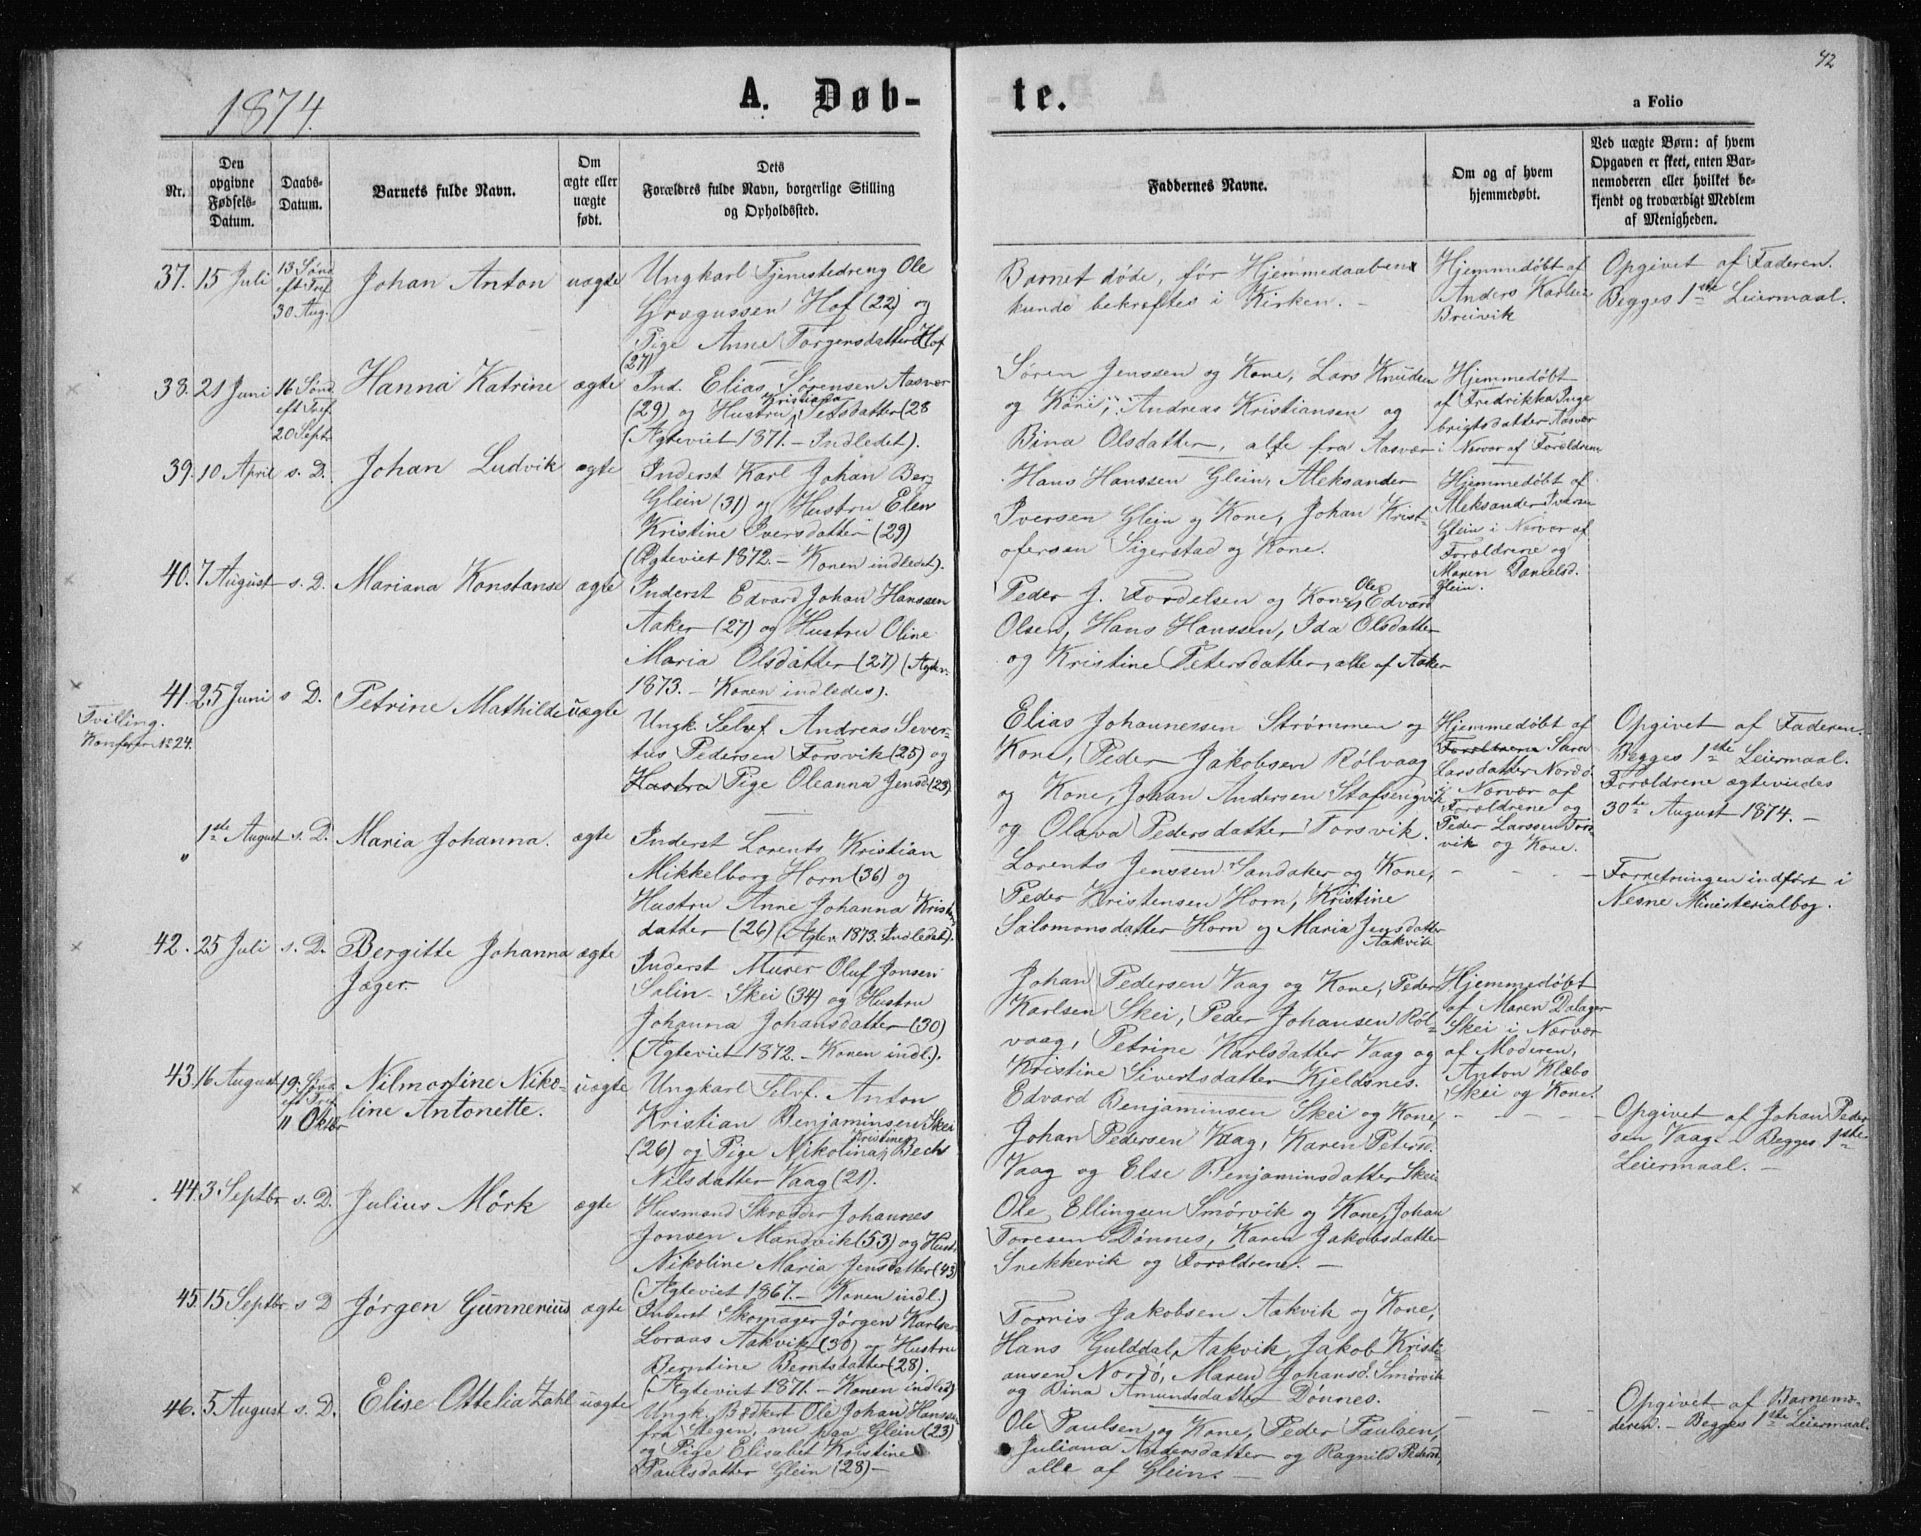 42
1874.
A. Døb-
te.
a Folio
Nr.
Den opgivne Fødsels-Datum.
Daabs-Datum.
Barnets fulde Navn.
Om ægte eller uægte født.
Dets Forældres fulde Navn, borgerlige Stilling og Opholdssted.
Faddernes Navne.
Om og af hvem hjemmedøbt.
Ved uægte Børn: af hvem Opgaven er skeet, enten Barnemoderen eller hvilket bekjendt og troværdigt Medlem af Menigheden.
37. 15 Juli
13 Sønd
eft Tref
30 Aug.
Johan Anton
uægte
Ungkarl Tjenestedreng Ole
Gregussen Hof (22) og
Pige Anne Torgersdatter Hof
(27)
Barnet døde, før Hjemmedaaben
kunde bekræftes i Kirken. -
Hjemmedøbt af
Anders Karlsen
Breivik
Opgivet af Faderen.
Begges 1ste Leiermaal.
38. 21 Juni
16 Sønd
eft Tref
20 Sept
Hanna Katrine
ægte
Ind. Elias Sørensen Aasvær
(29) og Hustru Kristiana Petsdatter (28
(Ægteviet 1871. - Indledet).
Søren Jenssen og Kone, Lars Knudsen
og Kone, Andreas Kristiansen og
Bina Olsdatter, alle fra Aasvær
Hjemmedøbt
af Fredrikka Inge
brigtsdatter Aasvær
i Nærvær af Forældrene
39. 10 April s. D.
Johan Ludvik
ægte
Inderst Karl Johan Berg
Glein (31) og Hustru Elen
Kristine Iversdatter (29)
(Ægteviet 1872. - Konen indledet).
Hans Hanssen Glein, Aleksander
Iversen Glein og Kone, Johan Krist-
ofersen Sigerstad og Kone.
Hjemmedøbt af
Aleksander Iversen
Glein i Nærvær af
Forældrene og
Maren Danielsd.
Glein.
40. 7 August s. D.
Mariana Konstanse
ægte
Inderst Edvard Johan Hanssen
Aaker (27) og Hustru Oline
Maria Olsdatter (27) (Ægtev.
1873. - Konen indledes).
Peder J. Fordelsen og Kone, Ole Edvard
Olsen, Hans Hanssen, Ida Olsdatter
og Kristine Petersdatter, alle af Aaker
41. 25 Juni s D.
Tvilling.
Konferer No 24.
Petrine Mathilde
uægte
Ungk. Selvf. Andreas Sever-
tus Pedersen Forsvik (25) og
Hustru Pige Oleanna Jensd (23)
Elias Johannessen Strømmen og
Kone, Peder Jakobsen Rølvaag
og Kone, Johan Andersen Stafsengvik
og Olava Pedersdatter Forsvik.
Hjemmedøbt af
Forældrene Sara
Larsdatter Nordø
i Nærvær af
Forældrene og
Peder Larssen Fors
vik og Kone.
Opgivet af Faderen.
Begges 1ste Leiermaal.
Forældrene ægteviedes
30te August 1874. -
" 1ste August s. D.
Maria Johanna.
ægte
Inderst Lorents Kristian
Mikkelborg Horn (36) og
Hustru Anne Johanna Krist
datter (26) (Ægtev. 1873. Indledet).
Lorents Jenssen Sandaker og Kone,
Peder Kristensen Horn, Kristine
Salomonsdatter Horn og Maria Jensdatter
Aakvik
- - - -
Forretningen indført i
Nesne Ministerialbog.
42. 25 Juli s. D.
Bergitte Johanna
Jæger.
ægte
Inderst Murer Oluf Jonsen
Solin - Skei (34) og Hustru
Johanna Johansdatter (30)
(Ægteviet 1872. - Konen indl.).
Johan Pedersen Vaag og Kone, Peder
Karlsen Skei, Peder Johansen Røl-
vaag, Petrine Karlsdatter Vaag og
Kristine Sivertsdatter Kjeldsnes.
Hjemmedøbt
af Maren Dalager
Skei i Nærvær
af Moderen,
Anton Klæbo
Skei og Kone.
43. 16 August
19. Sønd
eft Tref
11 Oktbr
Nilmortine Niko-
line Antonette.
uægte
Ungkarl Selvf. Anton
Kristian Benjaminsen Skei
(26) og Pige Nikolina Kristine Bech
Nilsdatter Vaag (21).
Edvard Benjaminsen Skei og Kone,
Johan Pedersen Vaag, Karen Petersd.
Vaag og Else Benjaminsdatter Skei
- - - -
Opgivet af Johan Peder-
sen, Vaag. - Begges 1ste
Leiermaal. -
44. 3 Septbr s. D.
Julius Mørk
ægte
Husmand Skrædder Johannes
Jonsen Mandvik (53) og Hust.
Nikoline Maria Jensdatter (43)
(Ægteviet 1867. - Konen indl.)
Ole Ellingsen Smørvik og Kone, Johan
Toresen Dønnes, Karen Jakobsdatter
Snekkevik og Forældrene. -
45. 15 Septbr s D
Jørgen Gunnerius
ægte
Inderst Skomager Jørgen Karlsen
Loraas Aakvik (30) og Hustru
Berntine Berntsdatter (28).
(Ægteviet 1871. - Konen indled)
Tornis Jakobsen Aakvik og Kone,
Hans Gulddal, Aakvik, Jakob Kristi-
ansen Nordø, Maren Johansd. Smørvik
og Bina Amundsdatter Dønnes.
46. 5 August s. D.
Elise Ottelia Zahl
uægte
Ungk. Bødkert Ole Johan Hanssen
fra Stegen, nu paa Glein (23)
og Pige Elisabet Kristine
Paulsdatter Glein (28) -
Ole Paulsen og Kone, Peder Paulsen,
Juliana Andersdatter og Ragnild Pedersd,
alle af Glein. -
- - -
Opgivet af Barnemo-
deren. - Begges 1ste Leiermaal.